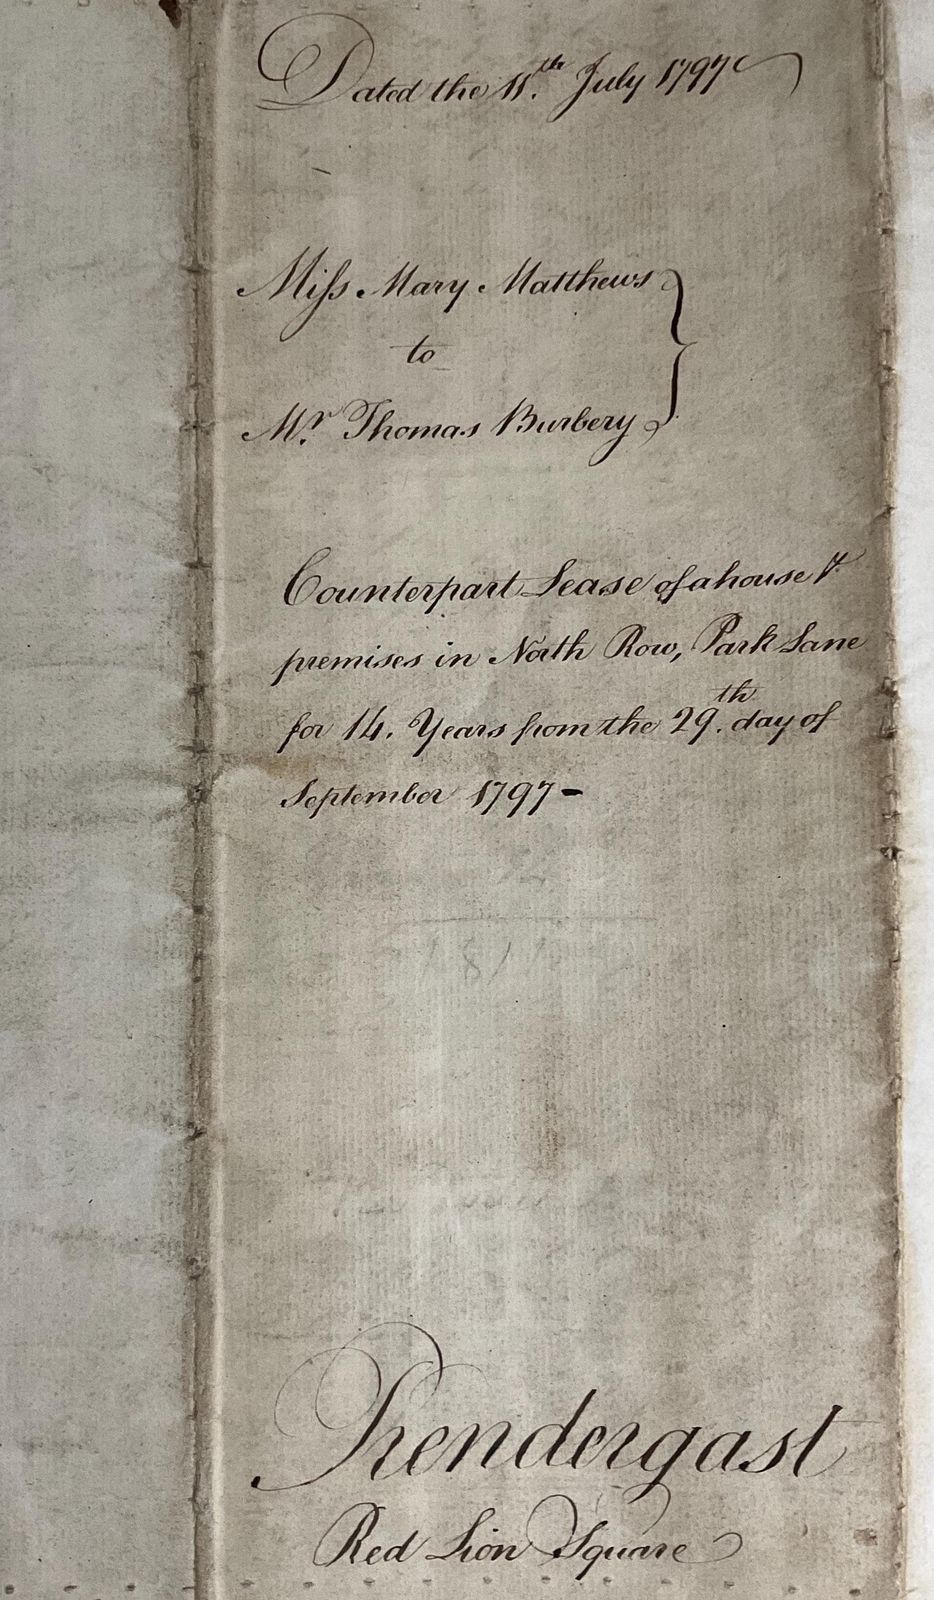 Dated the 11.th July 1797
Miſs Mary Matthews
to
Mr. Thomas Burbery
Counterpart Lease of a house &
premises in North Row, Park Lane
for 14. Years from the 29.th day of
September 1797 -
1811
Prendergast
Red Lion Square